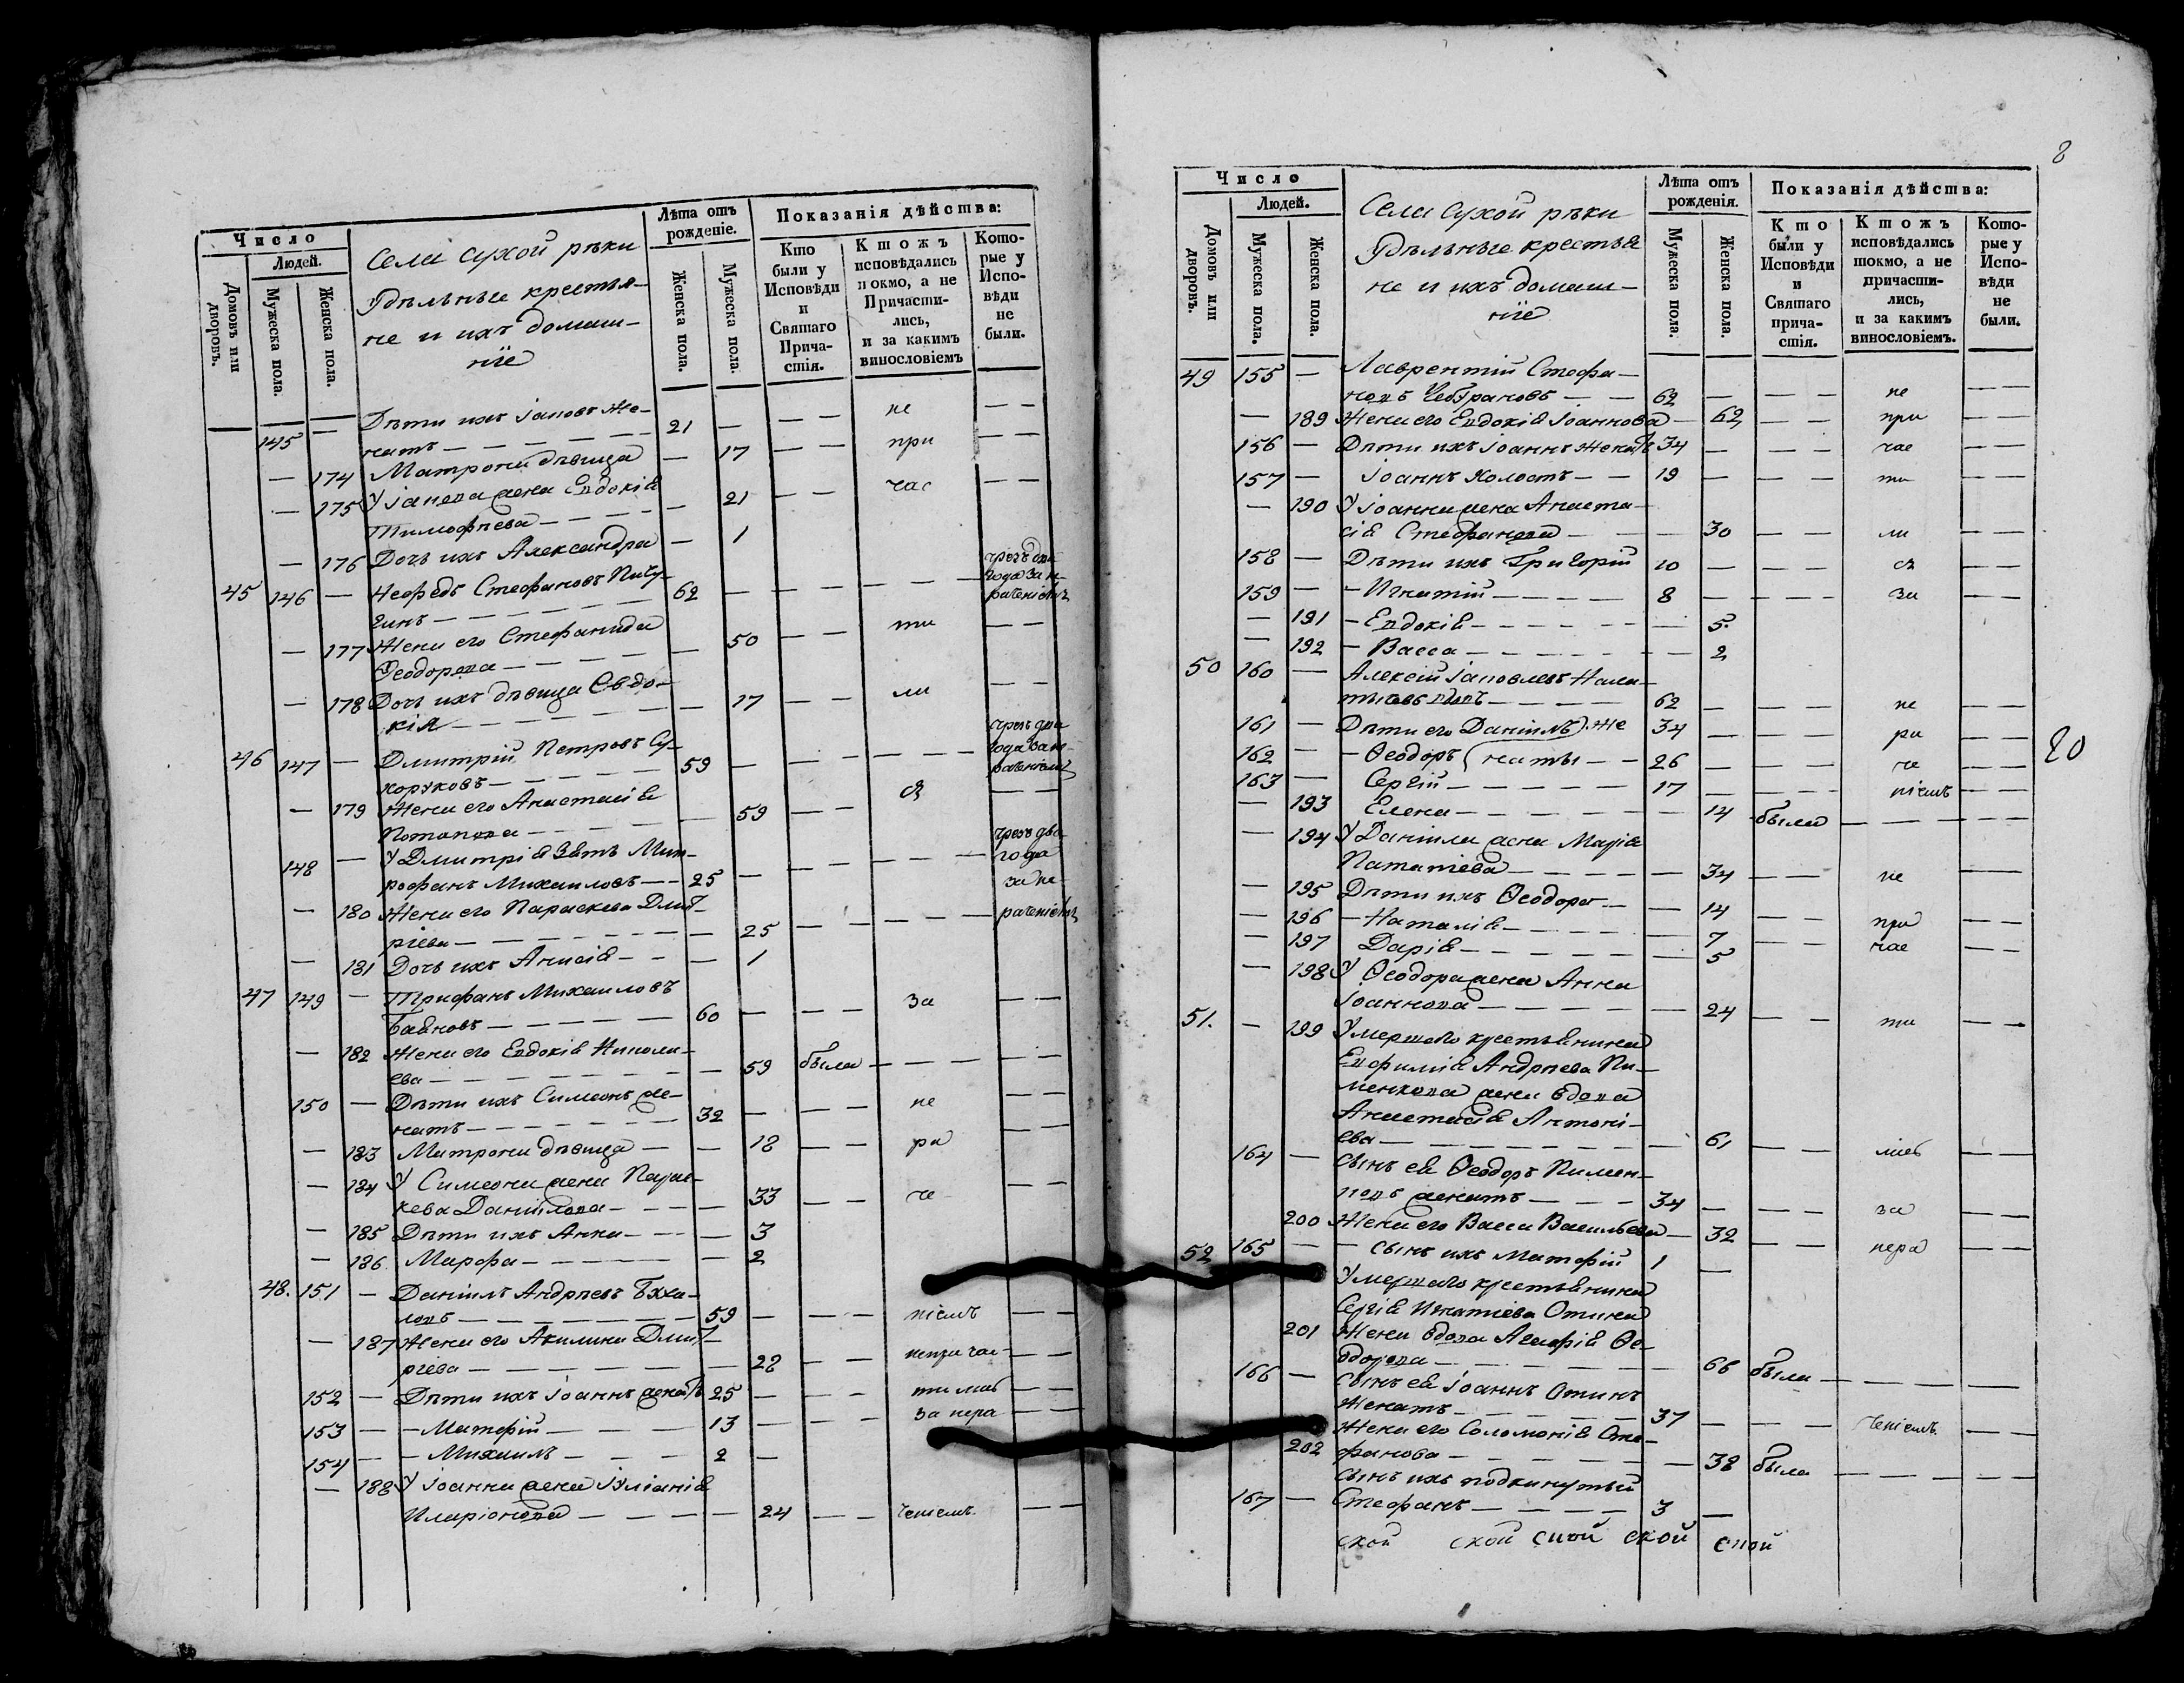 Число
Людей.
Домовъ или дворовъ.
Мужеска пола.
Женска пола.
Села Сухой реки
Удѣльные крестья-
не и ихъ домаш-
ніе
Лѣта отъ
рожденіе.
Женска пола.
Мужеска пола.
Показанія дѣйства:
Кто
были у
Исповѣди
и
Святаго
Прича-
стія.
Ктожъ
исповѣдались
токмо, а не
Причасти-
лись,
и за какимъ
винословіемъ
Кото-
рые у
Испо-
вѣди
не
были.
145 — Дѣти ихъ Іаковъ же-
натъ — 21 — — — не — —
— 174 Матрона дѣвица — 17 — при — —
— 175 У Іакова жена Евдокія
Тимофѣева — — 21 — — час — —
— 176 Дочь ихъ Александра — 1
45 146 — Стефановъ
62 — — — — —
— 177 Жена его Стефанида
Ѳеодорова — — 50 — — ти — —
— 178 Дочь ихъ дѣвица Евдо-
кія — — 17 — — ли — —
46 147 — Дмитрій Петровъ Су-
коруковъ — 59 — — — — чрезъ два года за не-
раченіемъ
— 179 Жена его Анастасія
Потапова — — 59 — — сь — —
148 — У Дмитрія зять Мит-
рофанъ Михаиловъ — 25 — — — — чрезъ два
года
за не-
раченіемъ
— 180 Жена его Параскева Дмит-
ріева — — 25 — — — —
— 181 Дочь ихъ Анисія — — 1
47 149 — Трифанъ Михаиловъ
Баяновъ — 60 — — — за — —
— 182 Жена его Евдокія Никола-
ева — — 59 была — — — —
150 — Дѣти ихъ Симеонъ же-
натъ — 32 — — — не — —
— 183 Матрона дѣвица — — 18 — — ра — —
— 184 У Симеона жена Парас-
кева Даниилова — — 33 — — че — —
— 185 Дѣти ихъ Анна — — 3
— 186 Марфа — — 2
48. 151 — Даніилъ Андреевъ
59 — — — ніемъ — —
— 187 Жена его Акилина Дмит-
ріева — — 28 — — непричас- — —
152 — Дѣти ихъ Іоаннъ женатъ 25 — — — тились — —
153 — — Матфій — 13 — — — за нера — —
154 — — Михаилъ — 2 —
— 188 У Іоанна жена Іуліанія
Иларіонова — — 24 — — ченіемъ — —
8
Число
Людей.
Домовъ или дворовъ.
Мужеска пола.
Женска пола.
Села Сухой рѣки
Удѣльные крестья
не и ихъ домаш-
ніе
Лѣта отъ
рожденія.
Мужеска пола.
Женска пола.
Показанія дѣйства:
Кто
были у
Исповѣди
и
Святаго
прича-
стія.
Ктожъ
исповѣдались
токмо, а не
причасти-
лись,
и за какимъ
винословіемъ.
Кото-
рые у
Испо-
вѣди
не
были.
49 155 — Лаврентій Стефа-
новъ — — 62 — — — не — —
— 189 Жена его Евдокія Іоаннова — 62 — — при — —
156 — Дѣти ихъ Іоаннъ женатъ 34 — — — час — —
157 — Іоаннъ холостъ — — 19 — — — ти — —
— 190 У Іоанна жена Анаста-
сія Стефанова — — 30 — — ли — —
158 — Дѣти ихъ Григорій 10 — — — сь — —
159 — — Игнатій — 8 — — — за — —
— 191 — Евдокія — — 5.
— 192 — Васса — — 2
50 160 — Алексій Іаковлевъ
вдовъ — 62 — — — не — —
161 — Дѣти его Даніилъ же 34 — — — ра — —
162 — — Ѳеодоръ наты — — 26 — — — че — —
163 — Сергій — 17 — — — ніемъ — —
— 193 Елена — — 14 была — — — —
— 194 У Даніила жена Марія
34 — — не — —
— 195 Дѣти ихъ Ѳеодора — — 14 — — при — —
— 196 — Наталія — — 7 — — час — —
— 197 Дарія — — 5
— 198 У Ѳеодора жена Анна
Іоаннова — — 24 — — ти — —
51. — 199 Умершаго крестьянина
Евфимія Андреева Пи-
менкова жена вдова
Анастасія Антоні-
ева — — 61 — — лись — —
164 — Сынъ ея Ѳеодоръ Пимен-
ковъ женатъ — 34 — — — за — —
200 Жена его Васса Васильева — 32 — — нера — —
52 165 — — сынъ ихъ Матфій 1 —
Умершаго крестьянина
Сергія Игнатіева Отина
201 Жена вдова Агафія Ѳе-
одорова — — 66 была — — — —
166 — Сынъ ея Іоаннъ Отинъ
женатъ — 37 — — — ченіемъ — —
202 Жена его Соломонія Сте-
фанова — — 38 была — — — —
сынъ ихъ подкинутый
167 — Стефанъ — 3 —
ской ской ской ской ской
20